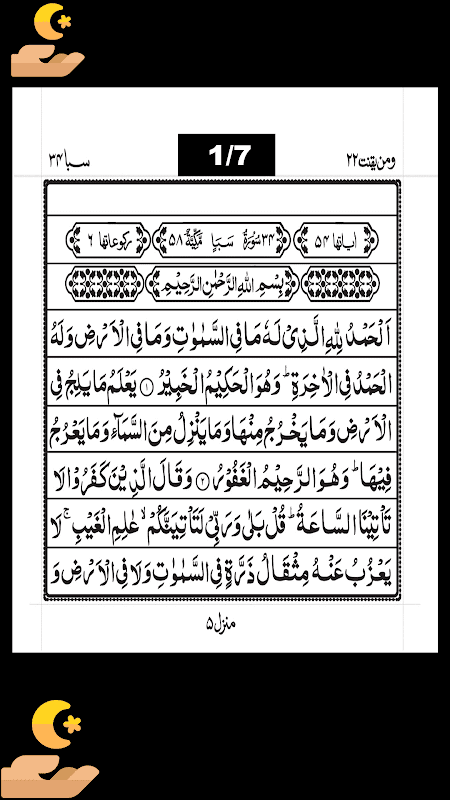 ومن یقنت ۲۲
1/7
سبا ۳۴
اٰیاتها ۵۴
۳۴ سُوْرَةُ سَبَاٍ مَّكِّیَّةٌ ۵۸
ركوعاتها ۶
بِسْمِ اللّٰهِ الرَّحْمٰنِ الرَّحِیْمِ
اَلْحَمْدُ لِلّٰهِ الَّذِیْ لَهٗ مَا فِی السَّمٰوٰتِ وَمَا فِی الْاَرْضِ وَلَهُ
الْحَمْدُ فِی الْاٰخِرَةِ ؕ وَهُوَ الْحَكِیْمُ الْخَبِیْرُ ۝۱ یَعْلَمُ مَا یَلِجُ فِی
الْاَرْضِ وَمَا یَخْرُجُ مِنْهَا وَمَا یَنْزِلُ مِنَ السَّمَآءِ وَمَا یَعْرُجُ
فِیْهَا ؕ وَهُوَ الرَّحِیْمُ الْغَفُوْرُ ۝۲ وَقَالَ الَّذِیْنَ كَفَرُوْا لَا
تَاْتِیْنَا السَّاعَةُ ؕ قُلْ بَلٰی وَرَبِّیْ لَتَاْتِیَنَّكُمْ ۙ عٰلِمِ الْغَیْبِ ۚ لَا
یَعْزُبُ عَنْهُ مِثْقَالُ ذَرَّةٍ فِی السَّمٰوٰتِ وَلَا فِی الْاَرْضِ وَ
منزل ۵